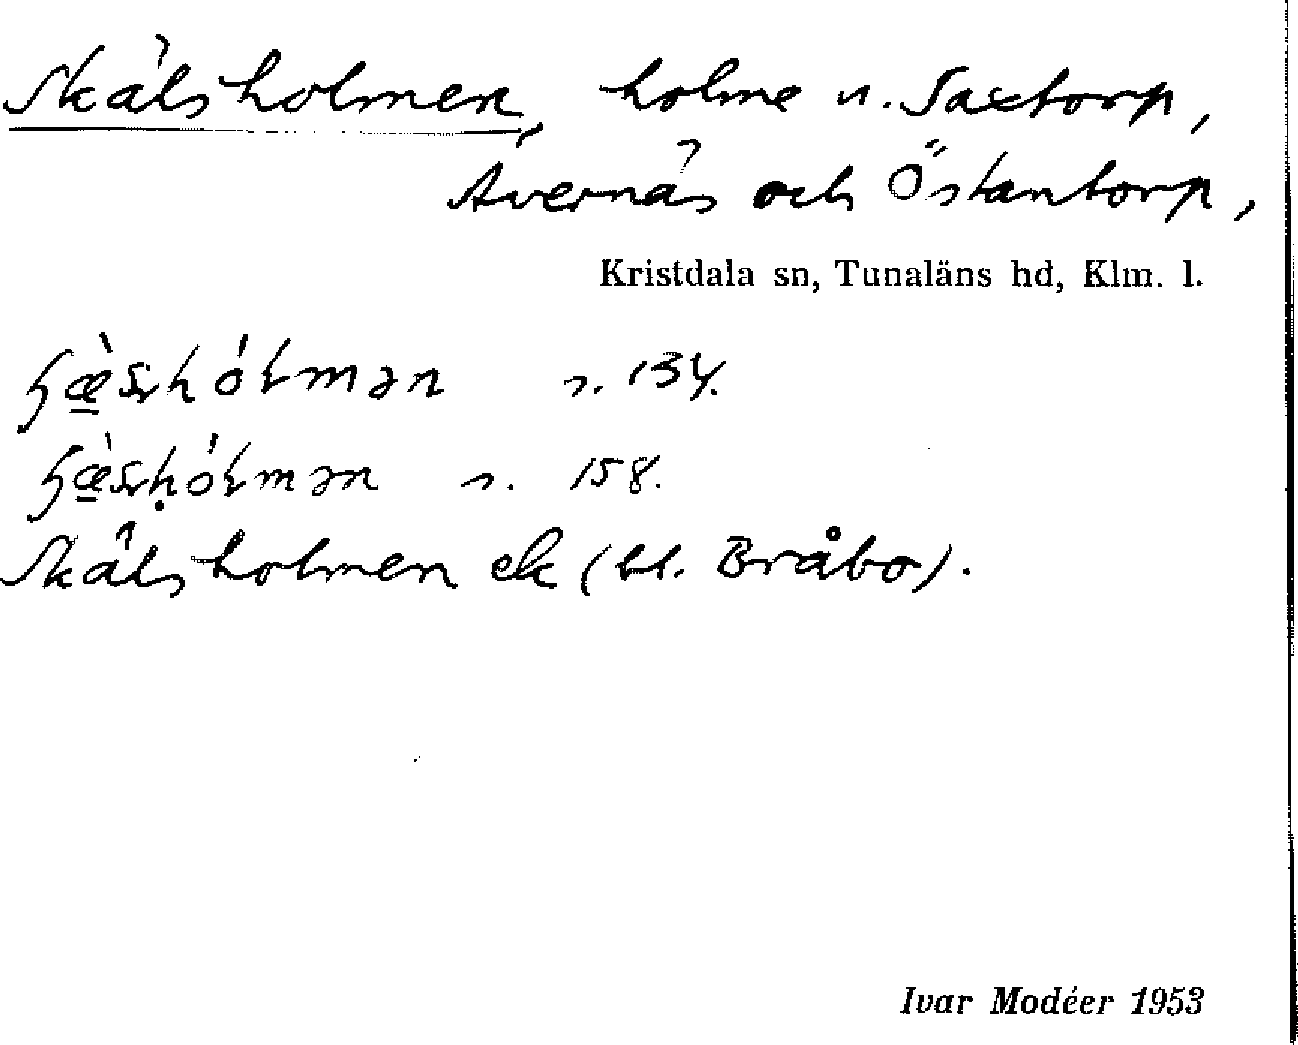 Skälsholmen, holme u. Saxtorp,
Ävernäs och Östantorp,
Kristdala sn, Tunaläns hd, Klm. l.
s. 134.
s. 158.
Skälsholmen ek (bl. Bråbo).
Ivar Modéer 1953